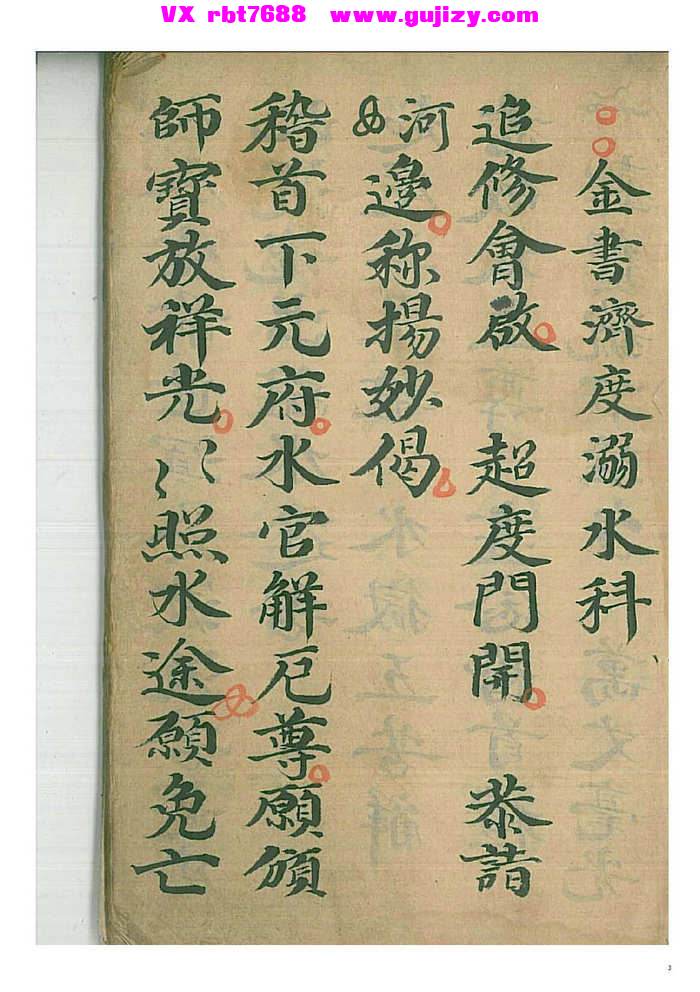 VX rbt7688 www.gujizy.com
金書濟度溺水科
追修會啟 超度門開 恭詣
河邊称揚妙偈
稽首下元府水官解厄尊願頒
師寶放祥光〻照水途願免亡
3